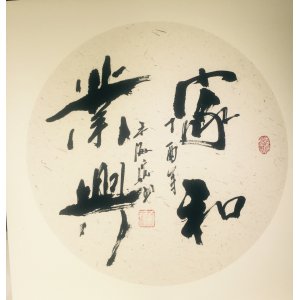 家和
業興
丁酉年